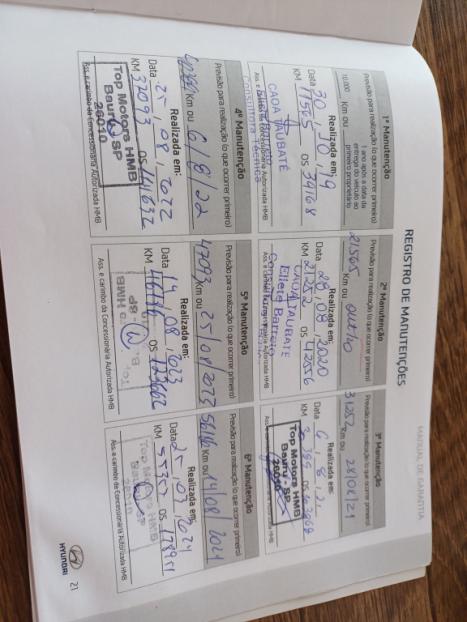 MANUAL DE GARANTIA
REGISTRO DE MANUTENÇÕES
1ª Manutenção
Previsão para realização (o que ocorrer primeiro)
10.000 Km ou
1 ano após a data da
entrega do veículo ao
primeiro proprietário
Realizada em:
Data 30, 10, 19
KM 11565 OS 39168
CAOA TAUBATE
Consultora Técnica
Ass. e carimbo da Concessionária Autorizada HMB
2ª Manutenção
Previsão para realização (o que ocorrer primeiro)
21565 Km ou
Realizada em:
Data 28, 08, 2020
KM 21252 OS 42856
CAOA TAUBATE
Ellede Barreto
Ass. e carimbo da Concessionária Autorizada HMB
3ª Manutenção
Previsão para realização (o que ocorrer primeiro)
31252 Km ou 28/08/21
Realizada em:
Data 6, 8, 21
Top Motors HMB
Bauru - SP
26010
Ass. e carimbo da Concessionária Autorizada HMB
4ª Manutenção
Previsão para realização (o que ocorrer primeiro)
Km ou 6/8/22
Realizada em:
Data 25, 08, 2022
KM 37093 OS 141632
Top Motors HMB
Bauru SP
26010
Ass. e carimbo da Concessionária Autorizada HMB
5ª Manutenção
Previsão para realização (o que ocorrer primeiro)
47093 Km ou 25/08/2023
Realizada em:
Data 14, 08, 2023
KM 46116 OS
Ass. e carimbo da Concessionária Autorizada HMB
6ª Manutenção
Previsão para realização (o que ocorrer primeiro)
56116 Km ou 14/08/2024
Realizada em:
Data 25, 07, 2024
KM 55357 OS 178951
Top Motors HMB
Bauru SP
26010
Ass. e carimbo da Concessionária Autorizada HMB
HYUNDAI
21